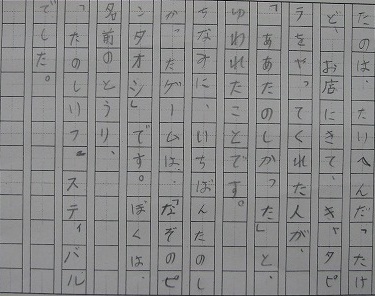 たのは、たいへんだったけ
ど、お店にきて、キャタピ
ラをやってくれた人が、
「ああたのしかった」と、
ゆわれたことです。
ちなみに、いちばんたのし
かったゲームは、「なぞのピ
ンタオシ」です。ぼくは、
名前のとうり、
「たのしいフェスティバル
でした。